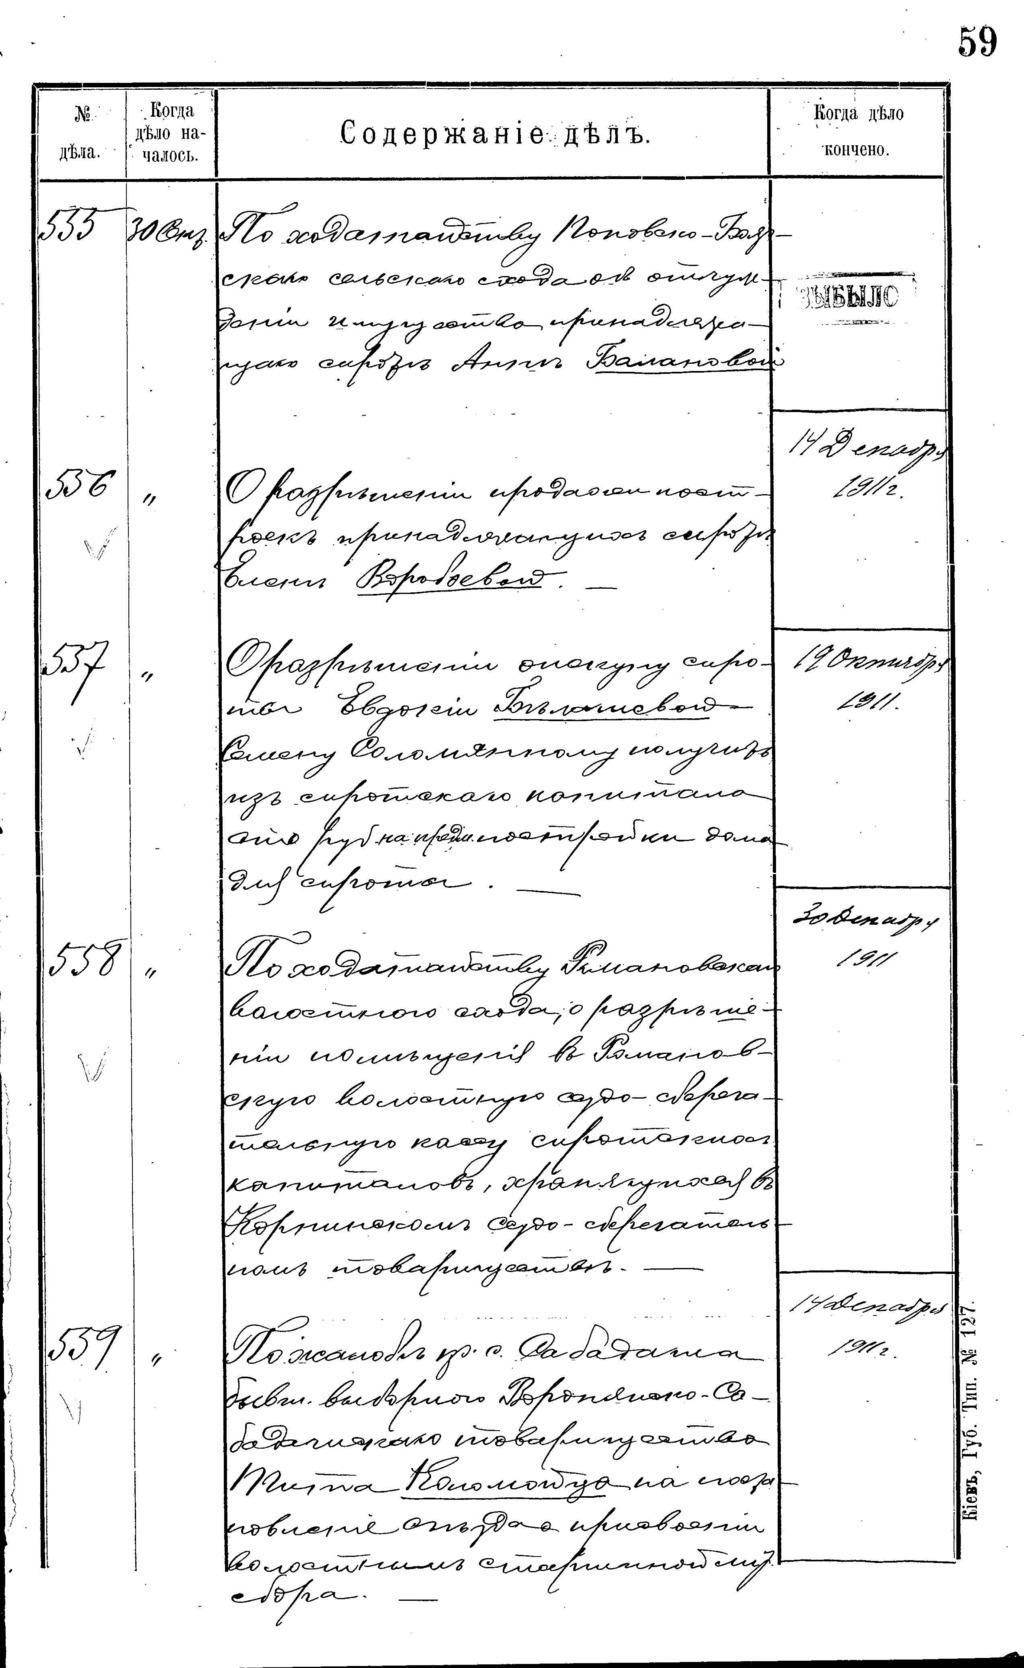 59
№ дѣла.
Когда дѣло началось.
Содержаніе дѣлъ.
Когда дѣло кончено.
555 30 Сен. По ходатайству Поповско-Бояр-
скаго сельскаго схода объ отчуж-
деніи имущества принадлежа-
щаго сиротѣ Аннѣ Балановой
ВЫБЫЛО
556 " О разрѣшеніи продажи пост-
роекъ принадлежащихъ сиротѣ
Еленѣ Воробьевой.
14 Декабря
1911 г.
557 " О разрѣшеніи опекуну сиро-
ты Евдокіи
Семену Соломянному получить
изъ сиротскаго капитала
сто руб на постройки дома
для сироты.
19 Октября
1911.
558 " По ходатайству Романовскаго
волостного схода, о разрѣше-
ніи помѣщенія въ Романов-
скую волостную ссудо-сберега-
тельную кассу сиротскихъ
капиталовъ, хранящихся въ
Корнинскомъ ссудо-сберегатель-
номъ товариществѣ.
30 Декабря
1911
559 " По жалобѣ кр. с. Сабадаша
бывш. выборнаго Воропянско-Са-
бадашскаго товарищества
Тита Коломойца на поста-
новленіе съѣзда о присвоеніи
волостнымъ старшиной
сбора.
14 Декабря
1911 г.
Кіевъ, Губ. Тип. № 127.